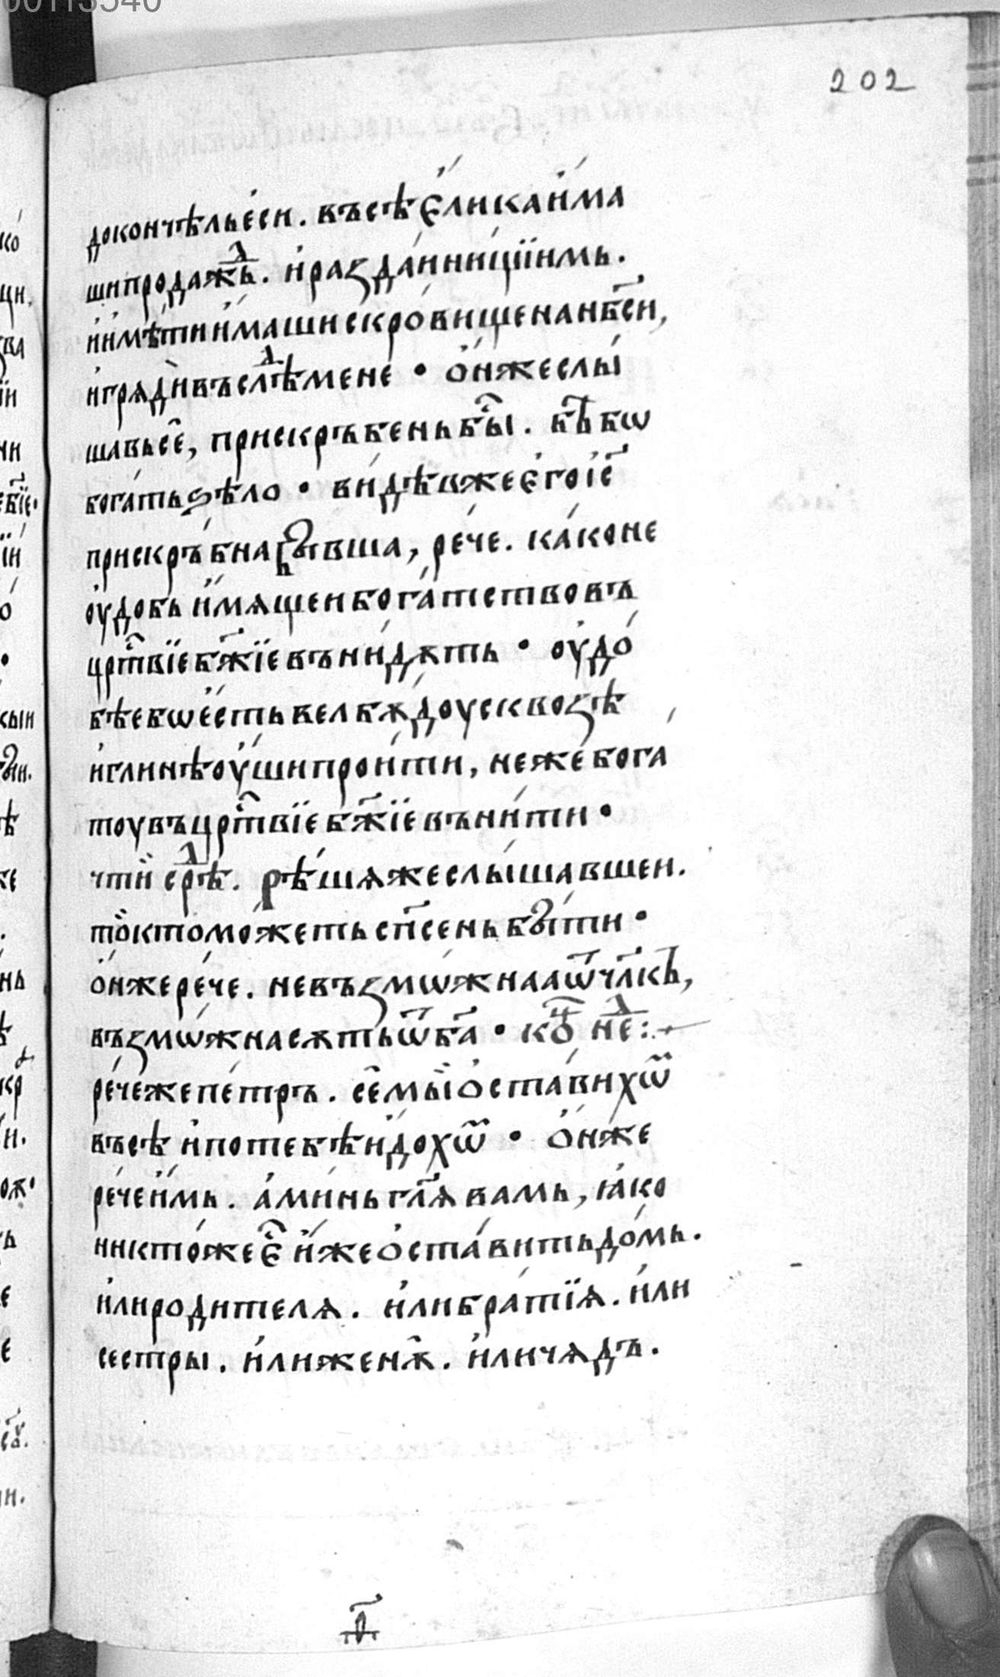 00113540
202
докончѣльѐси. въсѣ є҆лика и҆ма
ши продаж҇дь. и҆ раздаи нищїимь.
и҆ имѣти и҆маши скровище на нб҃си,
и҆ гряди въ слѣд мене • о҆н же слы
шавь сѐ, прискръбень бы҇. бѣ бѡ
богать ѕѣло • видѣв же є҆го і҆с҃
прискръбна бывша, рече. како не
оу҆добь и҆мѧщеи богатство въ
цр҇твїе бж҃їе вънидѫть • оу҆до
бѣе бѡ е҆сть велбѫдоу сквозѣ
и҆глинѣ оу҆ши проити, неже бога
тоу въ цр҇твїе бж҃їе внити •
чти срⷣѣ. Рѣшѧ же слышавшеи.
то кто можеть сп҃сень быти •
о҆н же рече. невъзмѡжнаа ѿ чл҃кь,
възмѡжна сѫть ѿ б҃а • ко҇ц не҇д :
рече же петръ. се мы о҆ставихѡм
въсѣ и҆ по тебѣ и҆дохѡм • О҆н же
рече и҆мь. а҆минь гл҃ѧ вамь, ꙗко
никтоже є҇ и҆же о҆ставить домь.
и҆ли родителѧ. и҆ли братїѧ. и҆ли
сестры. и҆ли женѫ. и҆ли чѧдъ.